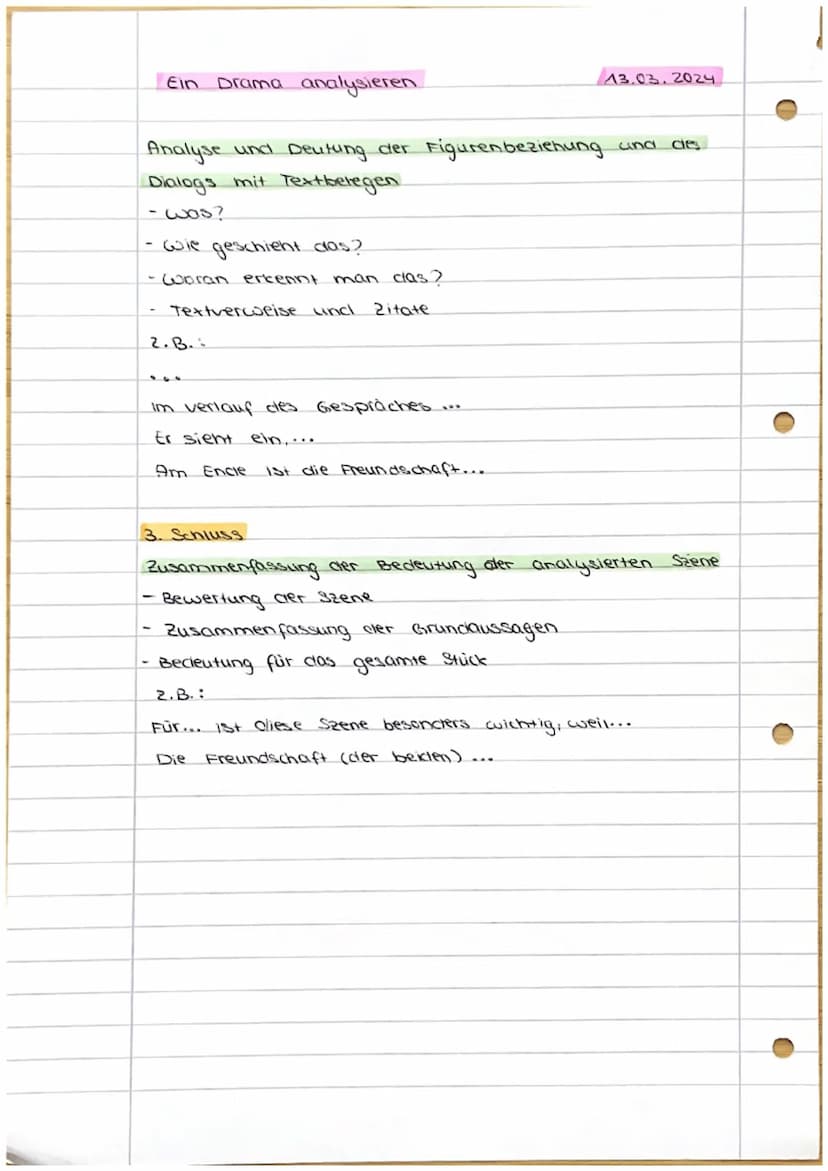 Ein Drama analysieren 13.03.2024
Analyse und Deutung der Figurenbeziehung und des
Dialogs mit Textbelegen
- Was?
- Wie geschieht das?
- Woran erkennt man das?
- Textverweise und Zitate
z.B.:
...
Im Verlauf des Gespräches ...
Er sieht ein,...
Am Ende ist die Freundschaft...
3. Schluss
Zusammenfassung der Bedeutung der analysierten Szene
- Bewertung der Szene
- Zusammenfassung der Grundaussagen
- Bedeutung für das gesamte Stück
z.B.:
Für... ist diese Szene besonders wichtig, weil...
Die Freundschaft (der beiden) ...